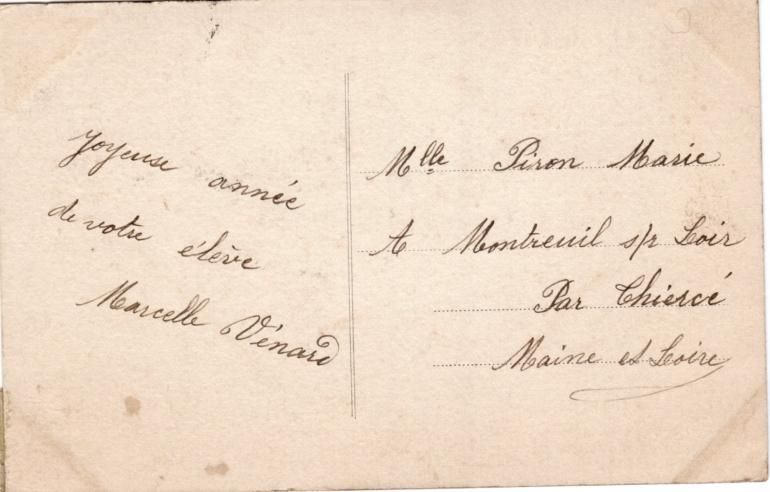 Joyeuse année
de votre élève
Marcelle Vénard
Mlle Piron Marie
A Montreuil s/r Loir
Par Chiercé
Maine et Loire